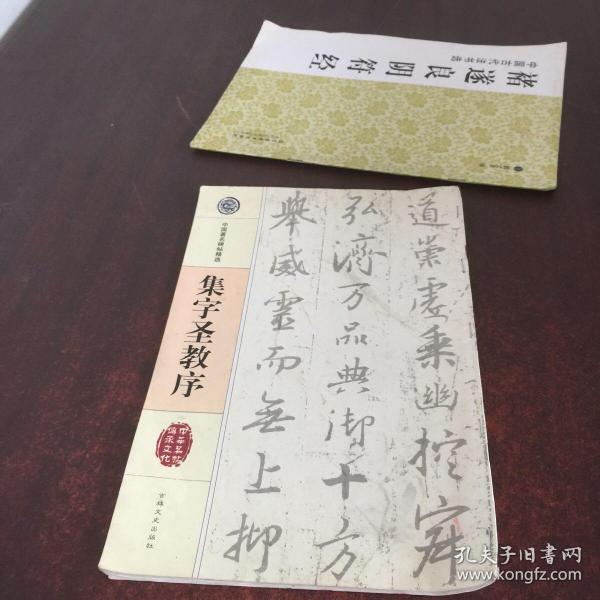 中国古代法书选
褚遂良阴符经
中国著名碑帖精选
集字圣教序
中华名帖
传承文化
吉林文史出版社
道崇虚乘幽控寂
弘济万品典御十方
举威灵而无上抑
孔夫子旧书网
www.kongfz.com